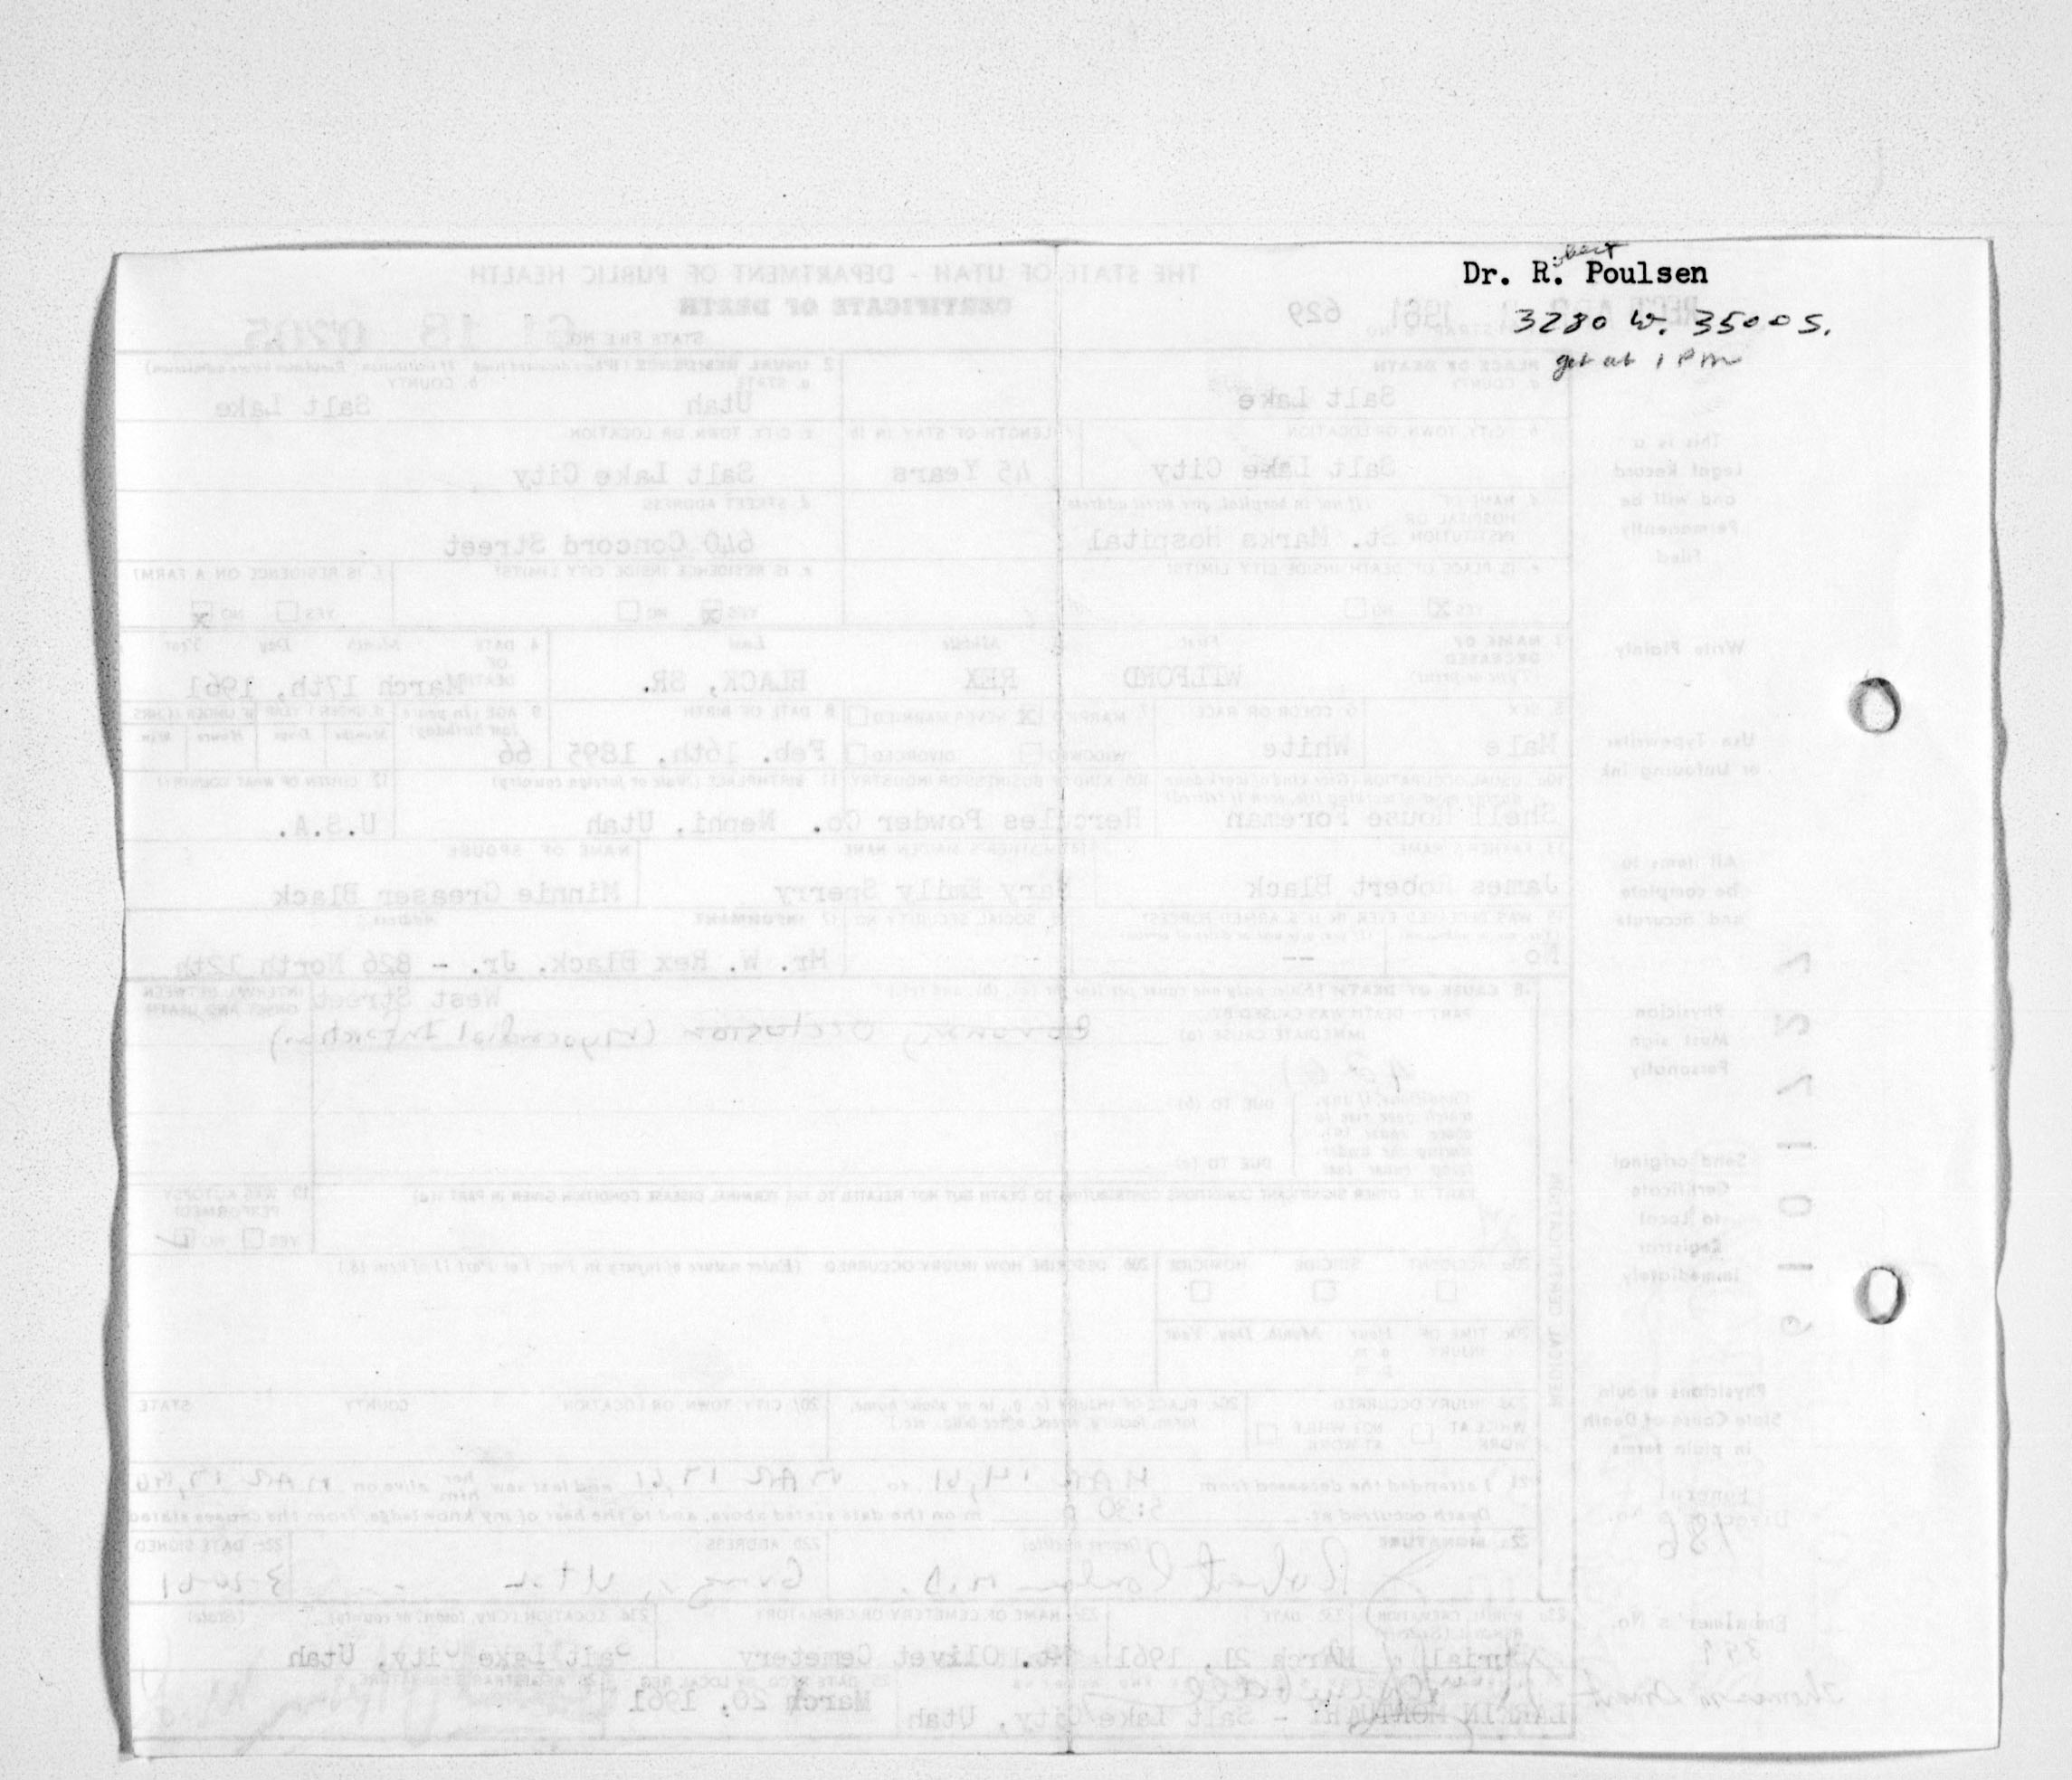 Dr. Robert Poulsen
3280 W. 3500 S.
get at 1 PM
THE STATE OF UTAH - DEPARTMENT OF PUBLIC HEALTH
CERTIFICATE OF DEATH
629
STATE FILE NO. 61 18 0705
PLACE OF DEATH
a. COUNTY
Salt Lake
2 USUAL RESIDENCE
a. STATE
Utah
b. COUNTY
Salt Lake
b. CITY, TOWN, OR LOCATION
Salt Lake City
LENGTH OF STAY IN 1b
45 Years
c. CITY, TOWN OR LOCATION
Salt Lake City
NAME OF HOSPITAL OR INSTITUTION
(If not in hospital, give street address)
St. Marks Hospital
d. STREET ADDRESS
640 Concord Street
IS PLACE OF DEATH INSIDE CITY LIMITS?
YES X NO
e. IS RESIDENCE INSIDE CITY LIMITS?
YES X NO
f. IS RESIDENCE ON A FARM?
YES NO X
NAME OF DECEASED
First
Middle
Last
WILFORD REX BLACK, SR.
4. DATE OF DEATH
Month Day Year
March 17th, 1961
5. SEX
Male
6. COLOR OR RACE
White
MARRIED X NEVER MARRIED
WIDOWED DIVORCED
8. DATE OF BIRTH
Feb. 16th, 1895
9. AGE (In years last birthday)
66
10a. USUAL OCCUPATION
Shell House Foreman
10b. KIND OF BUSINESS OR INDUSTRY
Hercules Powder Co.
11. BIRTHPLACE (State or foreign country)
Nephi, Utah
12. CITIZEN OF WHAT COUNTRY?
U.S.A.
13. FATHER'S NAME
James Robert Black
MOTHER'S MAIDEN NAME
Mary Emily Sperry
NAME OF SPOUSE
Minnie Greaser Black
15. WAS DECEASED EVER IN U.S. ARMED FORCES?
No --
SOCIAL SECURITY NO.
17. INFORMANT
Address
Mr. W. Rex Black, Jr. - 826 North 12th
West Street
18. CAUSE OF DEATH
PART I. DEATH WAS CAUSED BY:
IMMEDIATE CAUSE (a)
Coronary occlusion (myocardial Infarction)
INTERVAL BETWEEN ONSET AND DEATH
DUE TO (b)
DUE TO (c)
PART II. OTHER SIGNIFICANT CONDITIONS CONTRIBUTING TO DEATH BUT NOT RELATED TO THE TERMINAL DISEASE CONDITION GIVEN IN PART I(a)
19. WAS AUTOPSY PERFORMED?
YES NO
20a. ACCIDENT SUICIDE HOMICIDE
20b. DESCRIBE HOW INJURY OCCURRED
20c. TIME OF INJURY
Hour Month, Day, Year
a. m.
p. m.
20d. INJURY OCCURRED
WHILE AT WORK
NOT WHILE AT WORK
20e. PLACE OF INJURY (e. g., in or about home, farm, factory, street, office bldg., etc.)
20f. CITY, TOWN, OR LOCATION COUNTY STATE
21. I attended the deceased from MAR 14, 61 to MAR 17, 61 and last saw her him alive on MAR 17,
Death occurred at 5:30 m on the date stated above, and to the best of my knowledge, from the causes stated
22a. SIGNATURE
Robert Poulsen M.D.
22b. ADDRESS
Utah
22c. DATE SIGNED
3-20-61
BURIAL, CREMATION
Burial
23b. DATE
March 21, 1961
23c. NAME OF CEMETERY OR CREMATORY
Mt. Olivet Cemetery
23d. LOCATION (City, town, or county) (State)
Salt Lake City, Utah
LARKIN MORTUARY - Salt Lake City, Utah
DATE REC'D BY LOCAL REG.
March 20, 1961
REGISTRAR'S SIGNATURE
MEDICAL CERTIFICATION
This is a
Legal Record
and will be
Permanently
filed
Write Plainly
Use Typewriter
or Unfading Ink
All items to
be complete
and accurate
Physician
Must sign
Personally
Send original
Certificate
to Local
Registrar
immediately
Physicians should
State Cause of Death
in plain terms
Funeral
Director's No.
786
Embalmer's No.